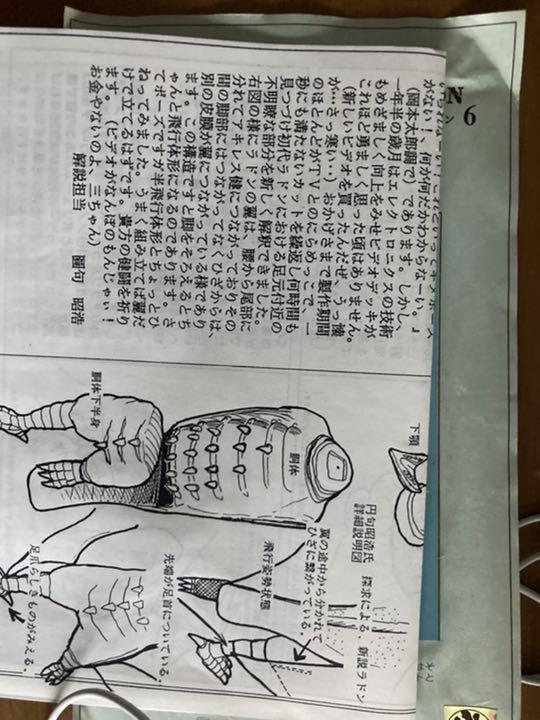 がない！、何が何だかわからなーい。』
(岡本太郎調で)であります。しかし、
一年半の歳月はエレクトロニクスの技術
もめざましく向上をみせビデオデッキが
これほど勇ましく思った頃はありません。
(新しいビデオを買ったんだぜ、うっ懐
が…さっ寒い…)おかげさまで製作期間
のほとんどがTVとのにらめっこで、一
秒にも満たないカットを繰返し何時間も
見つづけ初代ラドンにおける足元付近の
不明瞭な部分を新しく解釈できました。
右図の様にラドンの翼は、腰から尾部に
分れてアキレス腱につながっておりその
間の脚部にはつながってなくひざからは、
別の皮膜が翼につながっている様であり
ます。この構造ですと脚をそろえるとち
ゃんと飛行体形になるのであります。さ
てポーズですが半飛行体形とちょっとひ
ねってみました。うまく組み立てば翼だ
けで立てるはずです。貴方の健闘を祈り
ます。(ビデオがなんぼのもんじゃい！
お金やないのよ、三ちゃん)
解説担当 圓句 昭浩
N 6
下顎
胴体
胴体下半身
円句昭浩氏 探求による 新説ラドン
詳細説明図
翼の途中から分かれて
ひざに繋がっている。
飛行姿勢状態
先端が足首についている。
足爪らしきものがみえる。